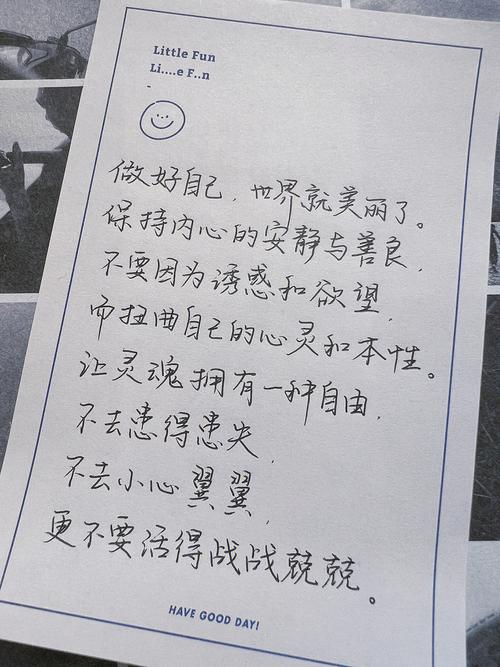 Little Fun
Li....e F..n
-
做好自己,世界就美丽了。
保持内心的安静与善良,
不要因为诱惑和欲望,
而扭曲自己的心灵和本性。
让灵魂拥有一种自由,
不去患得患失,
不去小心翼翼,
更不要活得战战兢兢。
HAVE GOOD DAY!